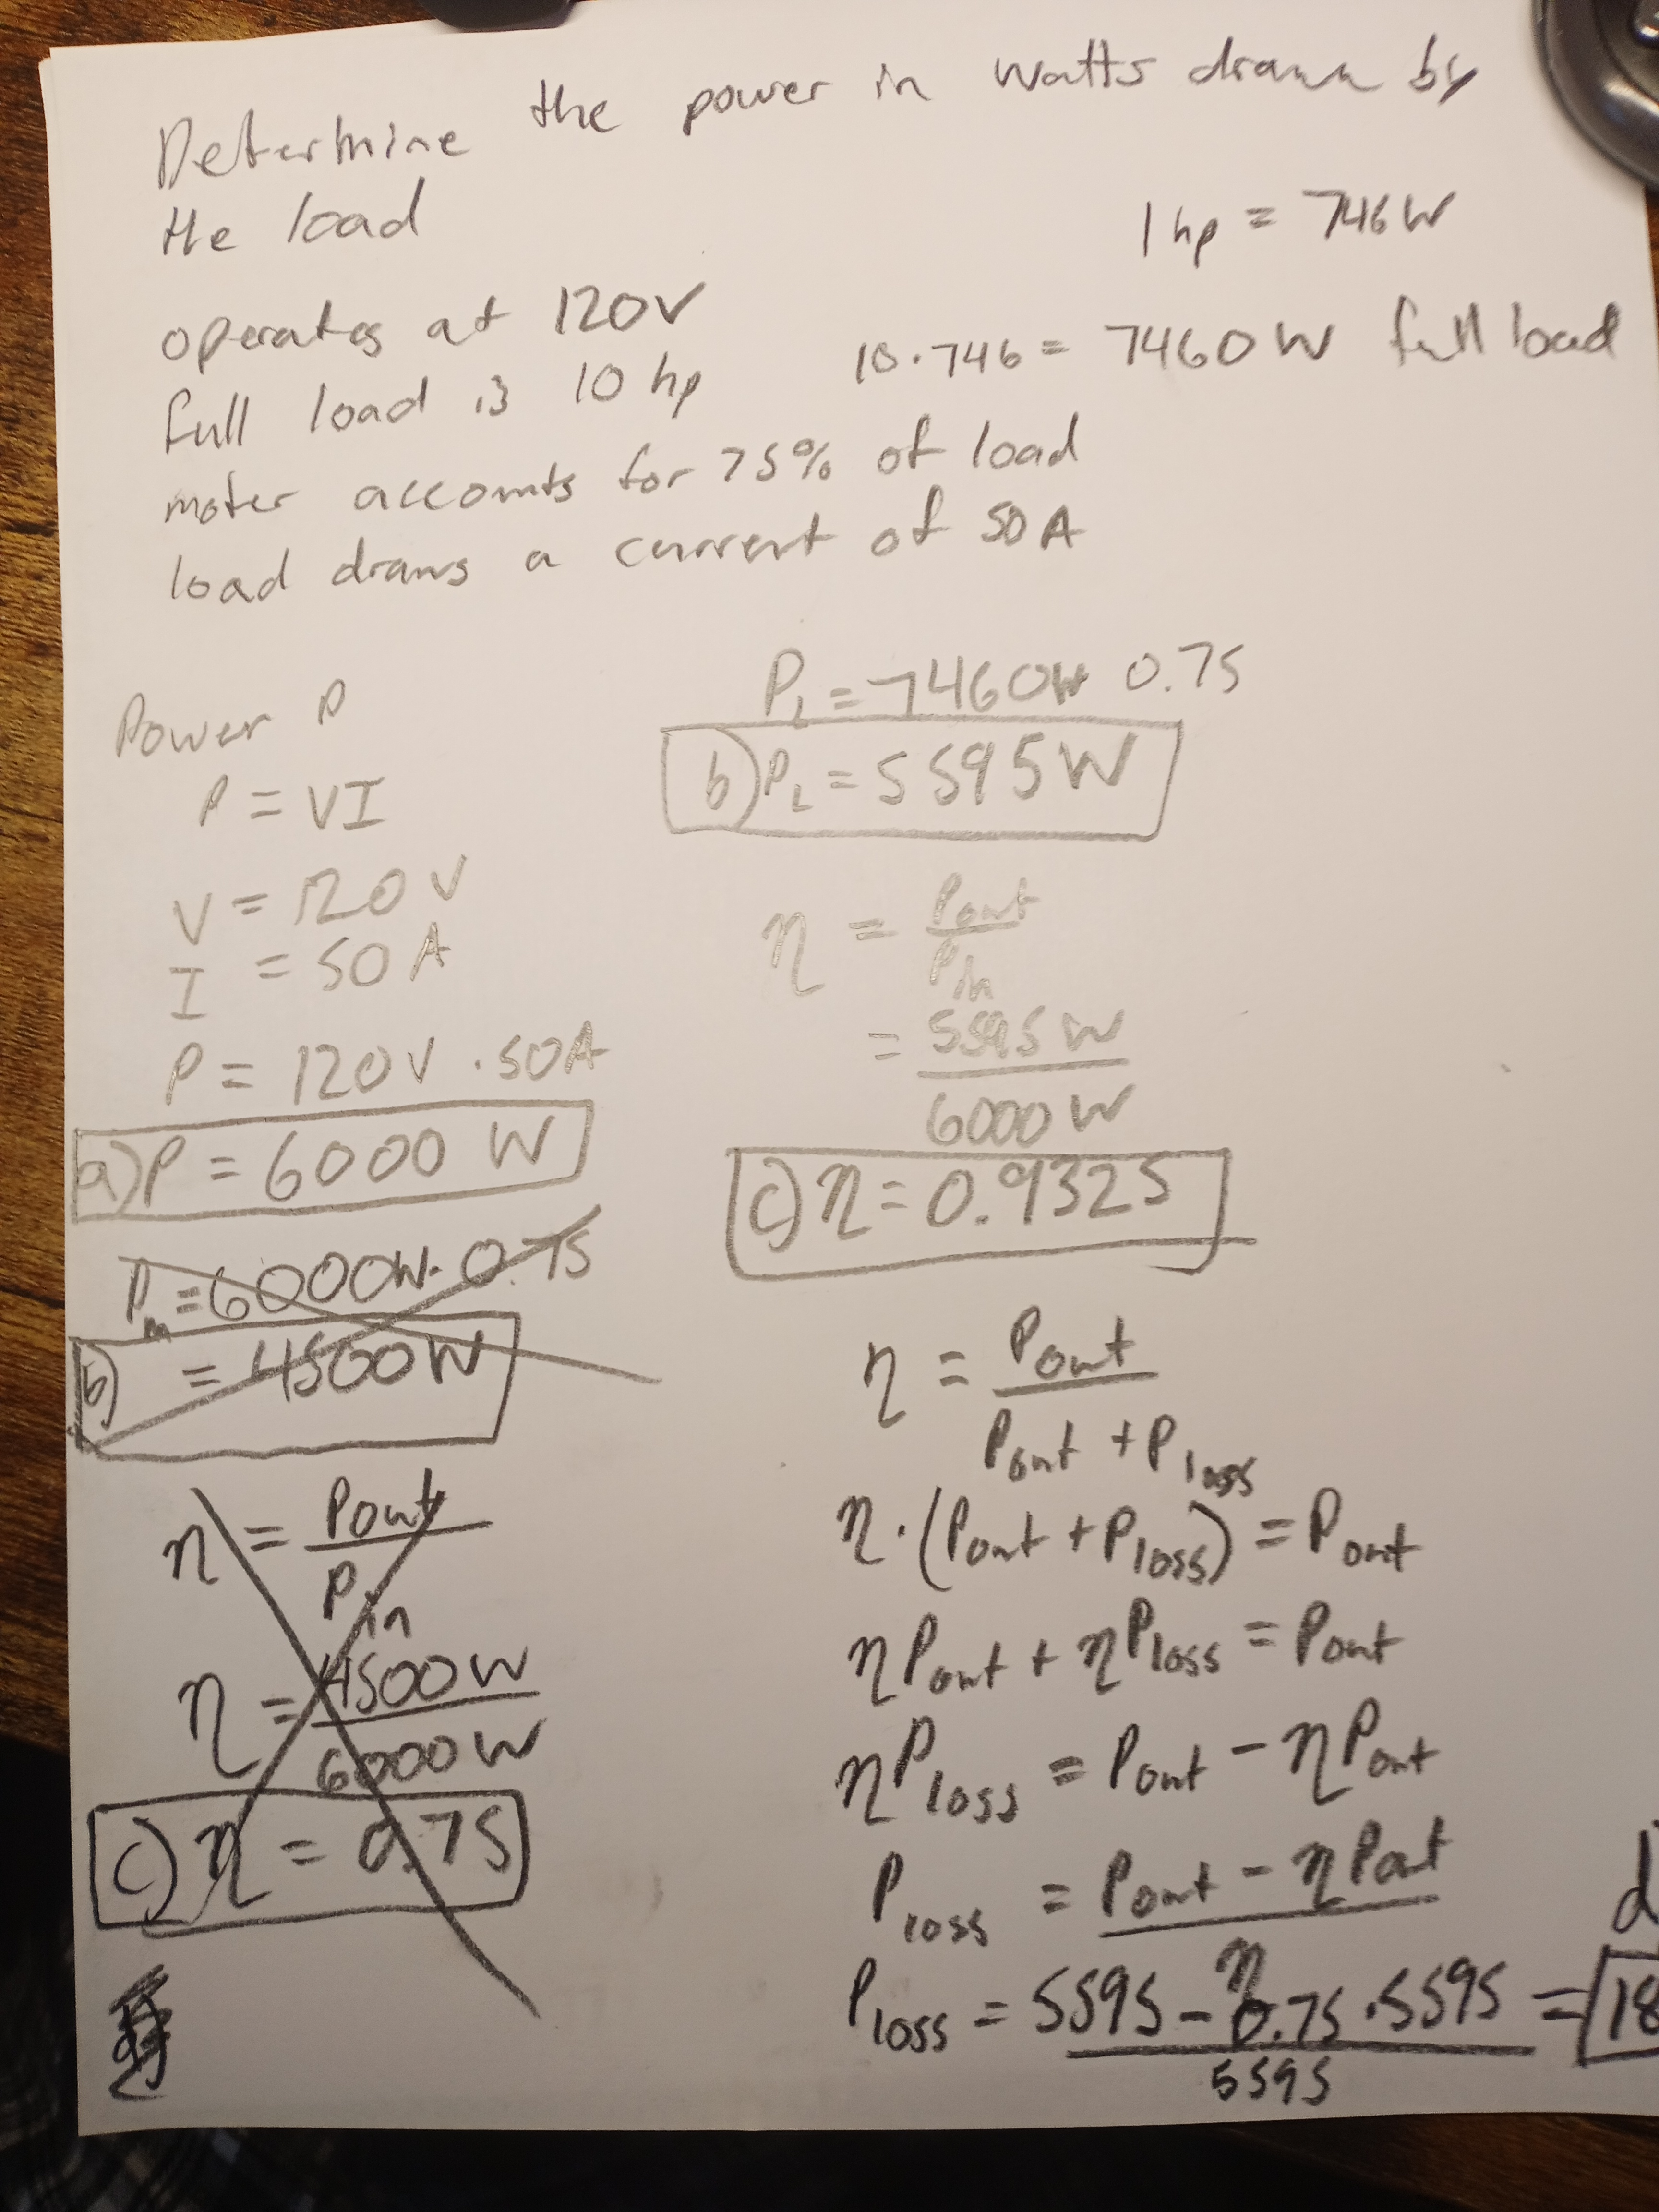 Determine the power in watts drawn by
the load
1 hp = 746W
operates at 120V
full load is 10 hp 10·746 = 7460W full load
moter accounts for 75% of load
load draws a current of 50A
Power P
P = VI
V = 120V
I = 50A
P = 120V·50A
a) P = 6000 W
Pm = 6000W·0.75
b) = 4500W
η = Pout / Pin
η = 4500W / 6000W
c) η = 0.75
PL = 7460W 0.75
b) PL = 5595W
η = Pout / Pin
= 5595W / 6000W
c) η = 0.9325
η = Pout / Pout + Ploss
η·(Pout + Ploss) = Pout
ηPout + ηPloss = Pout
ηPloss = Pout - ηPout
Ploss = Pout - ηPout / η
d
Ploss = 5595 - 0.75·5595 / 5595 = 18